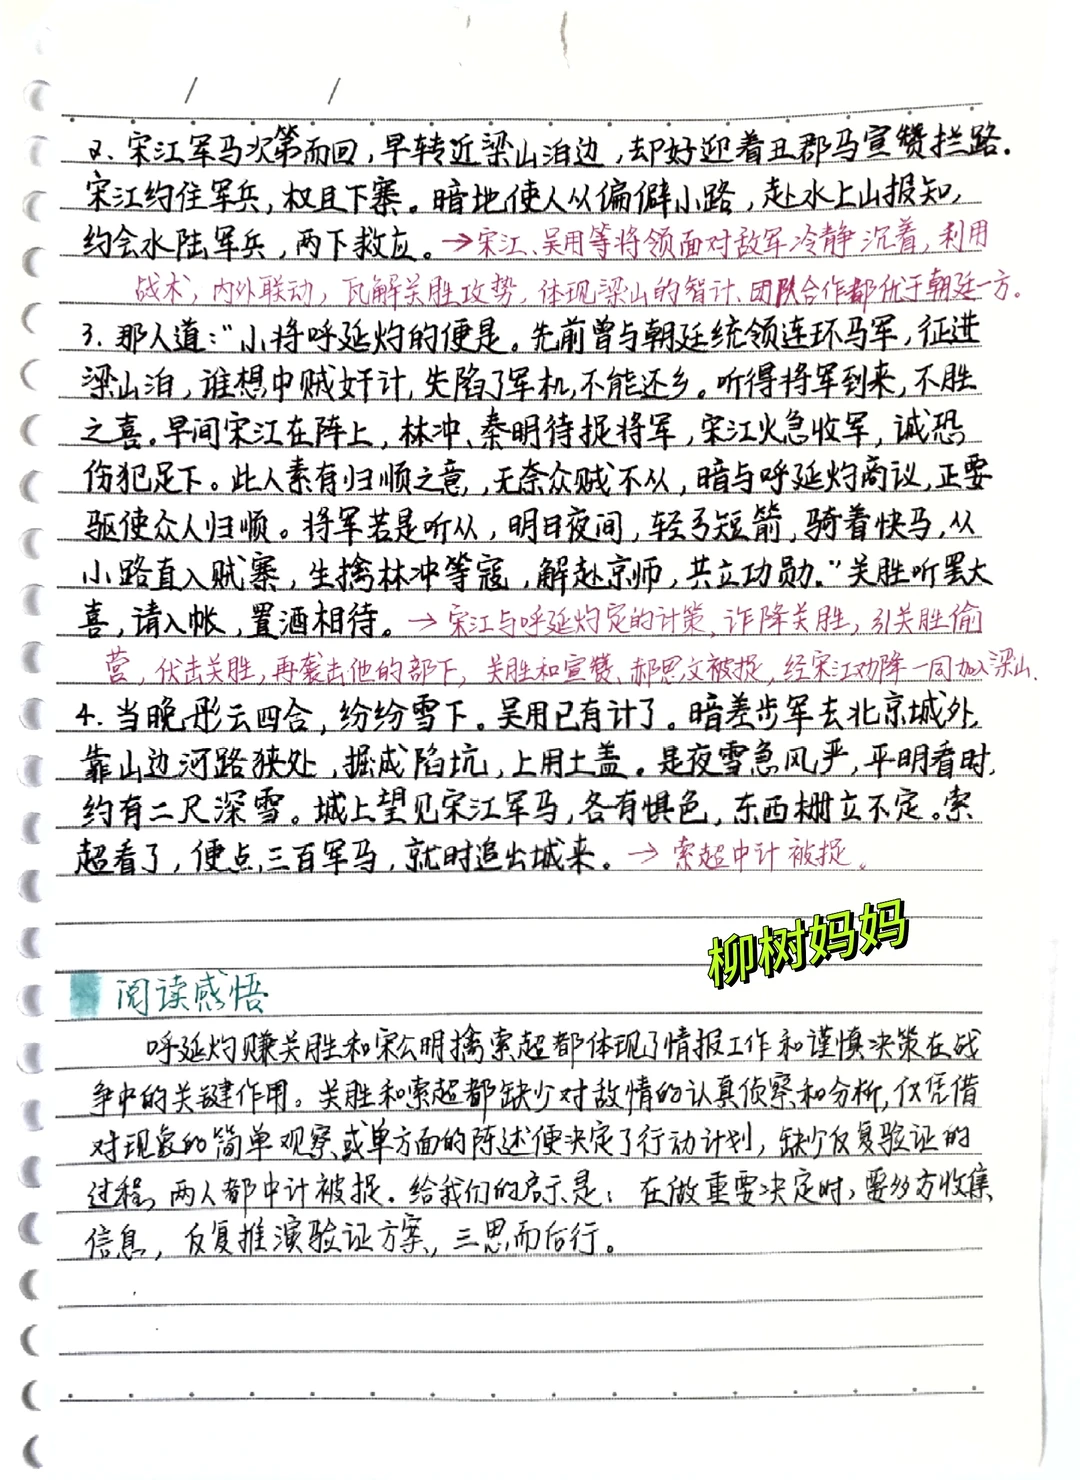 2、宋江军马次第而回，早转近梁山泊边，却好迎着丑郡马宣赞拦路.
宋江约住军兵，权且下寨。暗地使人从偏僻小路，赴水上山报知，
约会水陆军兵，两下救应。→宋江、吴用等将领面对敌军冷静沉着，利用
战术，内外联动，瓦解关胜攻势，体现梁山的智计、团队合作都优于朝廷一方。
3. 那人道：“小将呼延灼的便是。先前曾与朝廷统领连环马军，征进
梁山泊，谁想中贼奸计，失陷了军机，不能还乡。听得将军到来，不胜
之喜。早间宋江在阵上，林冲、秦明待捉将军，宋江火急收军，诚恐
伤犯足下。此人素有归顺之意，无奈众贼不从，暗与呼延灼商议，正要
驱使众人归顺。将军若是听从，明日夜间，轻弓短箭，骑着快马，从
小路直入贼寨，生擒林冲等寇，解赴京师，共立功勋.”关胜听罢大
喜，请入帐，置酒相待。→宋江与呼延灼定的计策，诈降关胜，引关胜偷
营，伏击关胜，再袭击他的部下，关胜和宣赞、郝思文被捉，经宋江劝降一同加入梁山.
4. 当晚彤云四合，纷纷雪下。吴用已有计了。暗差步军去北京城外，
靠山边河路狭处，掘成陷坑，上用土盖。是夜雪急风严，平明看时，
约有二尺深雪。城上望见宋江军马，各有惧色，东西栅立不定。索
超看了，便点三百军马，就时追出城来。→索超中计被捉。
柳树妈妈
阅读感悟
呼延灼赚关胜和宋公明擒索超都体现了情报工作和谨慎决策在战
争中的关键作用。关胜和索超都缺少对敌情的认真侦察和分析，仅凭借
对现象的简单观察或单方面的陈述便决定了行动计划，缺少反复验证的
过程，两人都中计被捉。给我们的启示是：在做重要决定时，要多方收集
信息，反复推演验证方案，三思而后行。